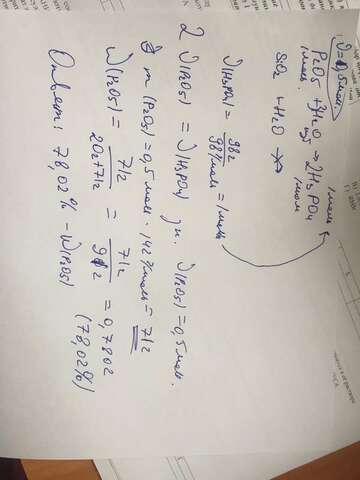 ν=0,5моль
P₂O₅ + 3H₂O → 2H₃PO₄
1моль изб 1моль
SiO₂ + H₂O ↛
ν(H₃PO₄) = 98г / 98г/моль = 1моль
2 ν(P₂O₅) = ν(H₃PO₄) ν(P₂O₅) = 0,5 моль.
m (P₂O₅) = 0,5 моль · 142 г/моль = 71г
W(P₂O₅) = 71г / 20г+71г = 71г / 91г = 0,7802
(78,02%)
Ответ: 78,02% - W(P₂O₅)